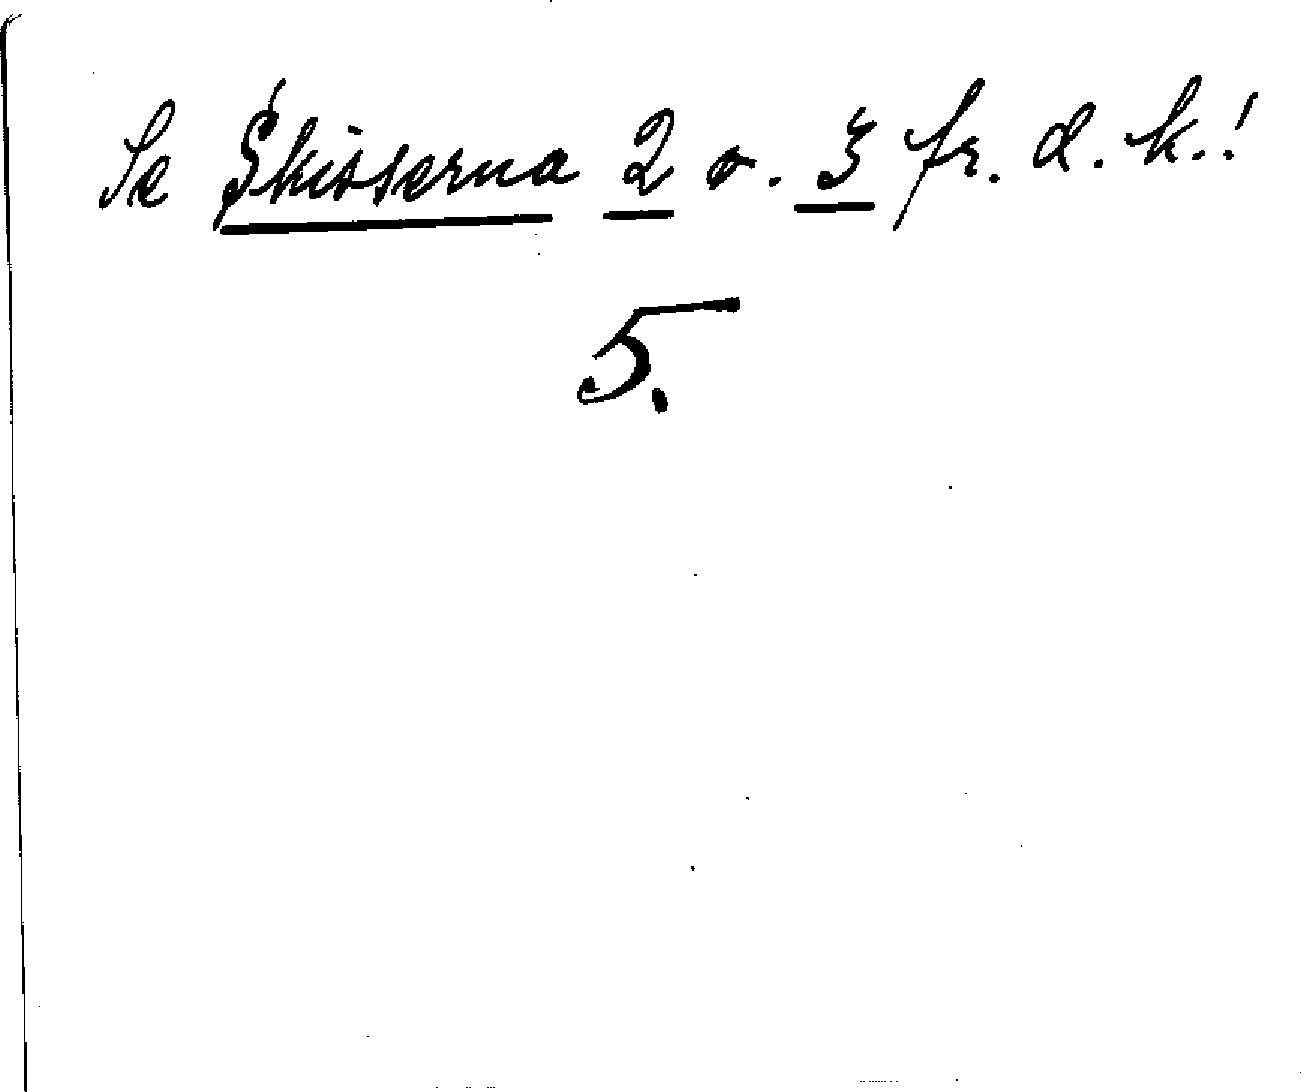 Se Skisserna 2 o. 3 fr. d. k.!
5.